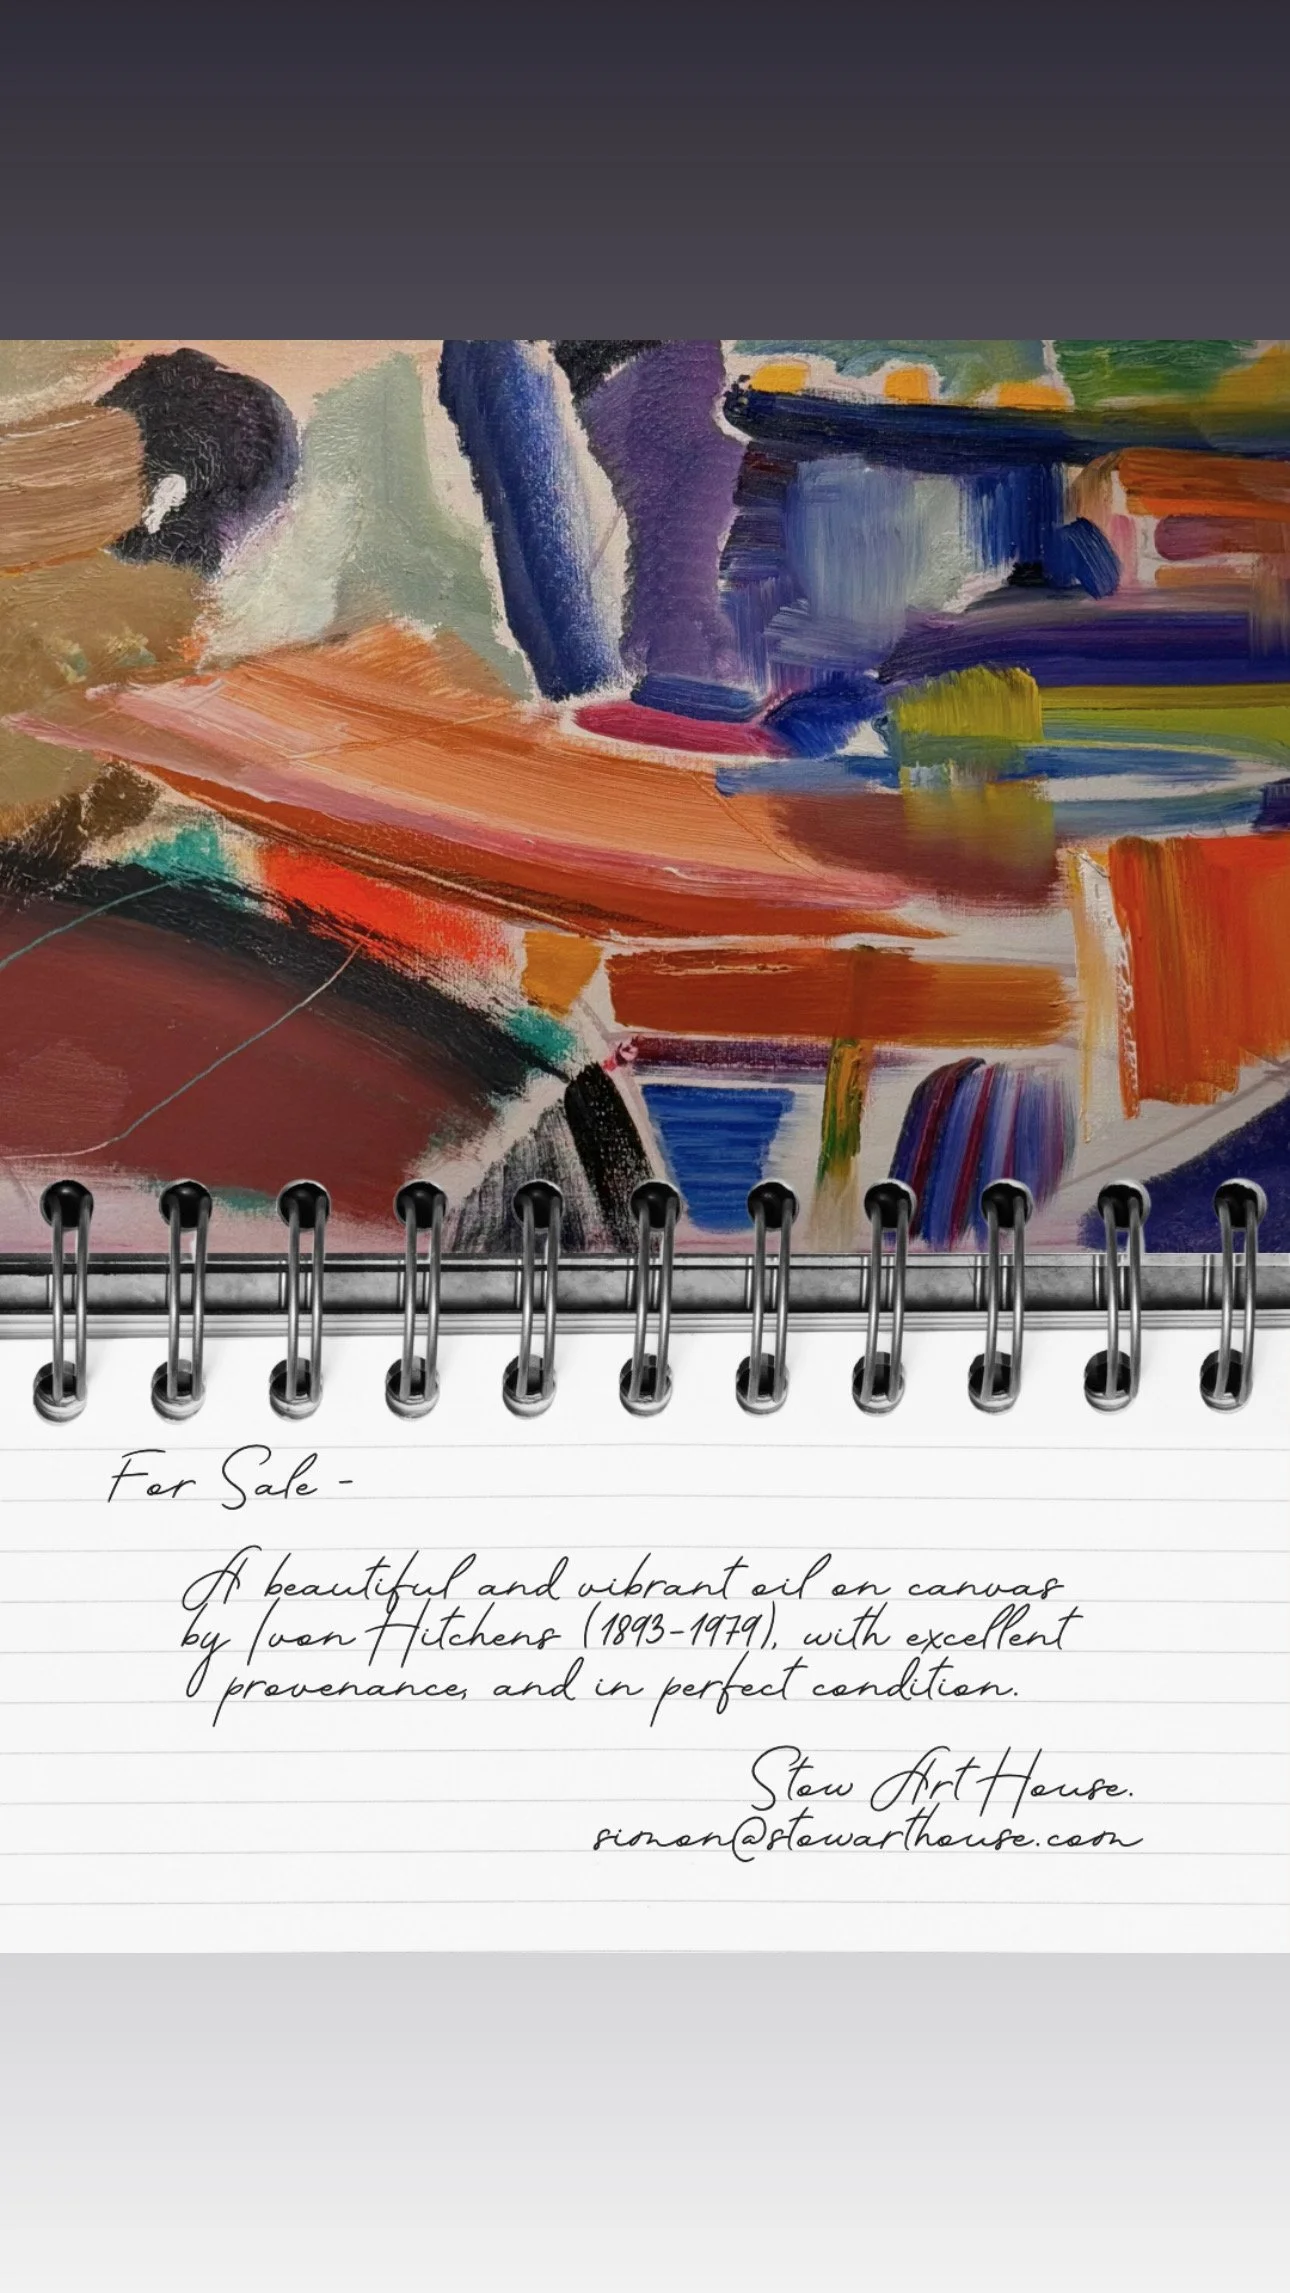 For Sale -
A beautiful and vibrant oil on canvas
by Ivon Hitchens (1893-1979), with excellent
provenance, and in perfect condition.
Stow Art House.
simon@stowarthouse.com